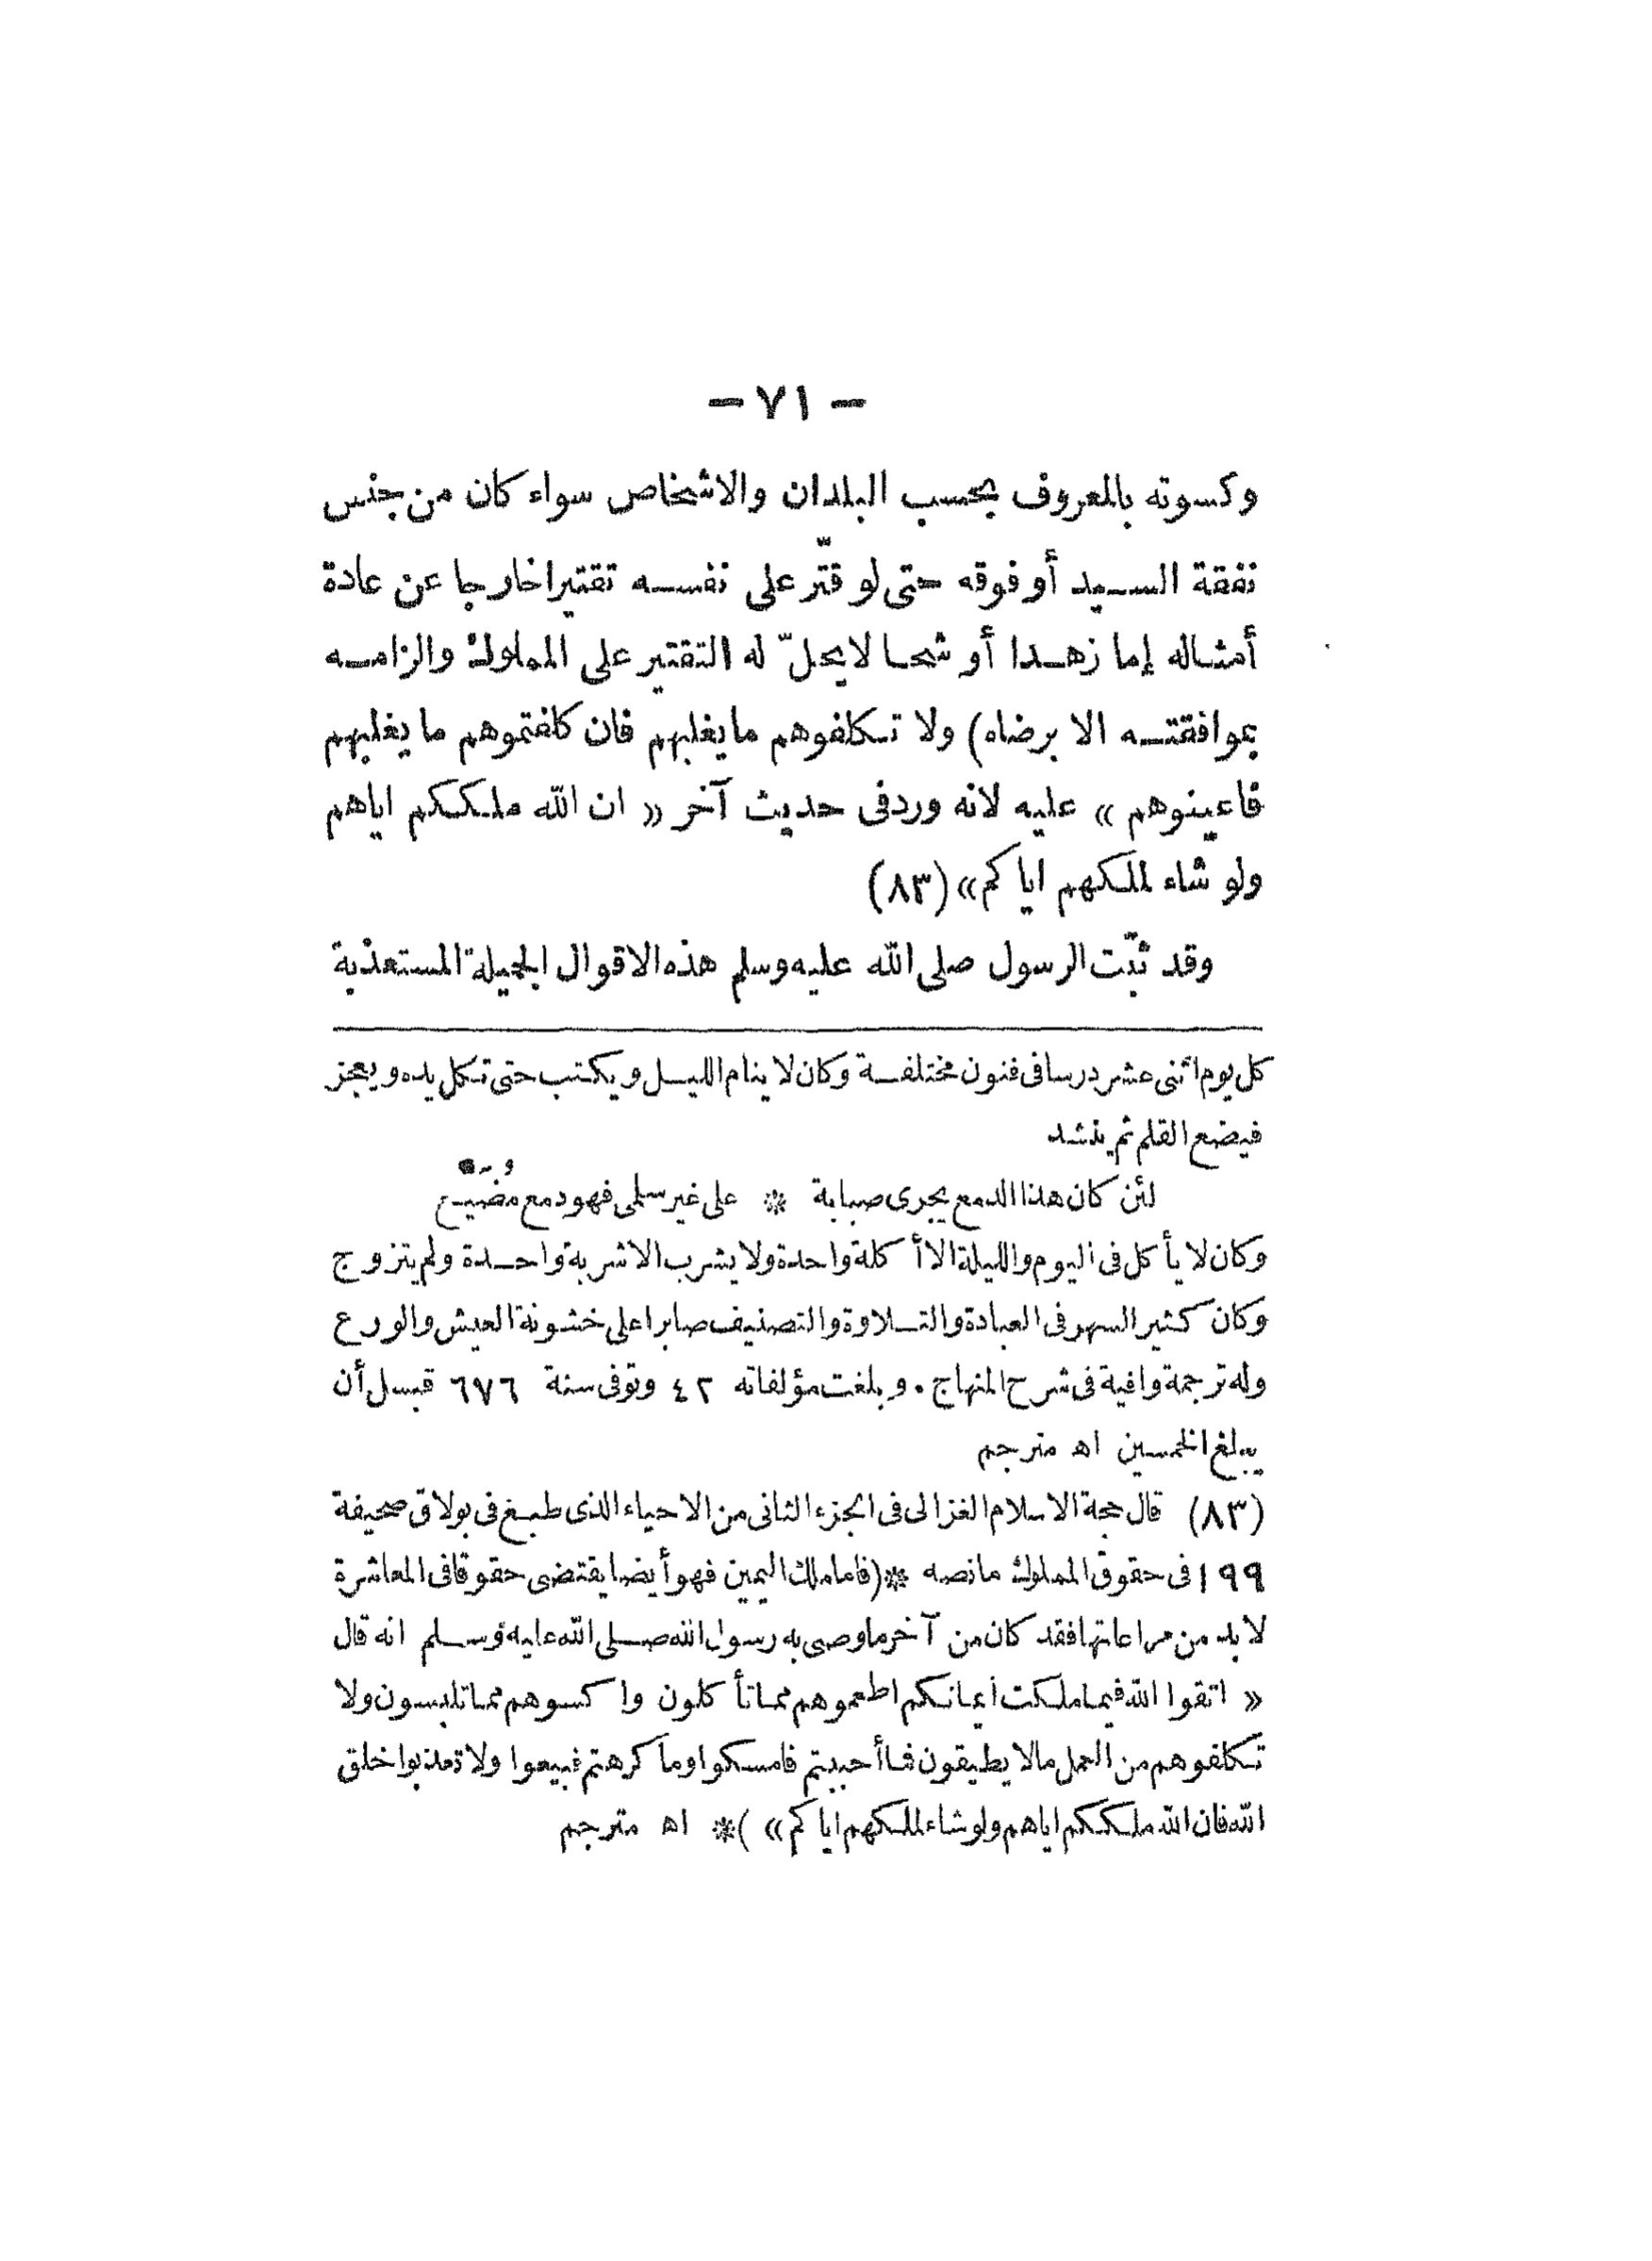 — ٧١ —
وكسوته بالمعروف بحسب البلدان والاشخاص سواء كان من جنس
نفقة السيد أو فوقه حتى لو قتّر على نفسه تقتيرا خارجا عن عادة
أمثاله إما زهدا أو شحا لا يحلّ له التقتير على المملوك والزامه
بموافقته الا برضاه) ولا تكلفوهم ما يغلبهم فان كلفتموهم ما يغلبهم
فاعينوهم » عليه لانه ورد فى حديث آخر « ان الله ملككم اياهم
ولو شاء لملكهم اياكم» (٨٣)
وقد ثبّت الرسول صلى الله عليه وسلم هذه الاقوال الجميلة المستعذبة
كل يوم اثنى عشر درسا فى فنون مختلفة وكان لا ينام الليل ويكتب حتى تكل يده ويعجز
فيضع القلم ثم ينشد
لئن كان هذا الدمع يجرى صبابة * على غير سلمى فهو دمع مُضَيَّع
وكان لا يأكل فى اليوم والليلة الا أكلة واحدة ولا يشرب الا شربة واحدة ولم يتزوج
وكان كثير السهر فى العبادة والتلاوة والتصنيف صابرا على خشونة العيش والورع
وله ترجمة وافية فى شرح المنهاج . وبلغت مؤلفاته ٤٢ وتوفى سنة ٦٧٦ قبل أن
يبلغ الخمسين اه مترجم
(٨٣) قال حجة الاسلام الغزالى فى الجزء الثانى من الاحياء الذى طبع فى بولاق صحيفة
١٩٩ فى حقوق المملوك ما نصه *(فاما ملك اليمين فهو أيضا يقتضى حقوقا فى المعاشرة
لا بد من مراعاتها فقد كان من آخر ما وصى به رسول الله صلى الله عليه وسلم انه قال
« اتقوا الله فيما ملكت ايمانكم اطعموهم مما تأكلون واكسوهم مما تلبسون ولا
تكلفوهم من العمل ما لا يطيقون فما أحببتم فامسكوا وما كرهتم فبيعوا ولا تعذبوا خلق
الله فان الله ملككم اياهم ولو شاء لملكهم اياكم» )* اه مترجم